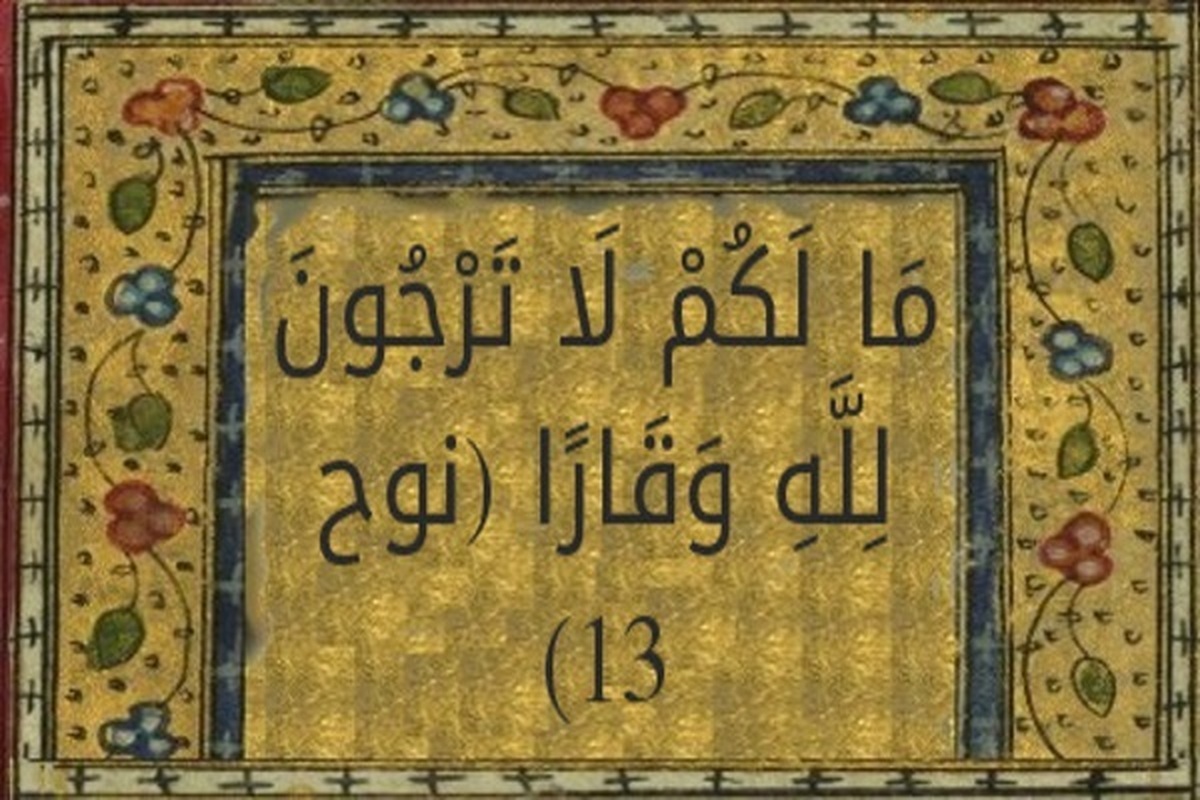 مَا لَكُمْ لَا تَرْجُونَ
لِلَّهِ وَقَارًا (نوح
13)